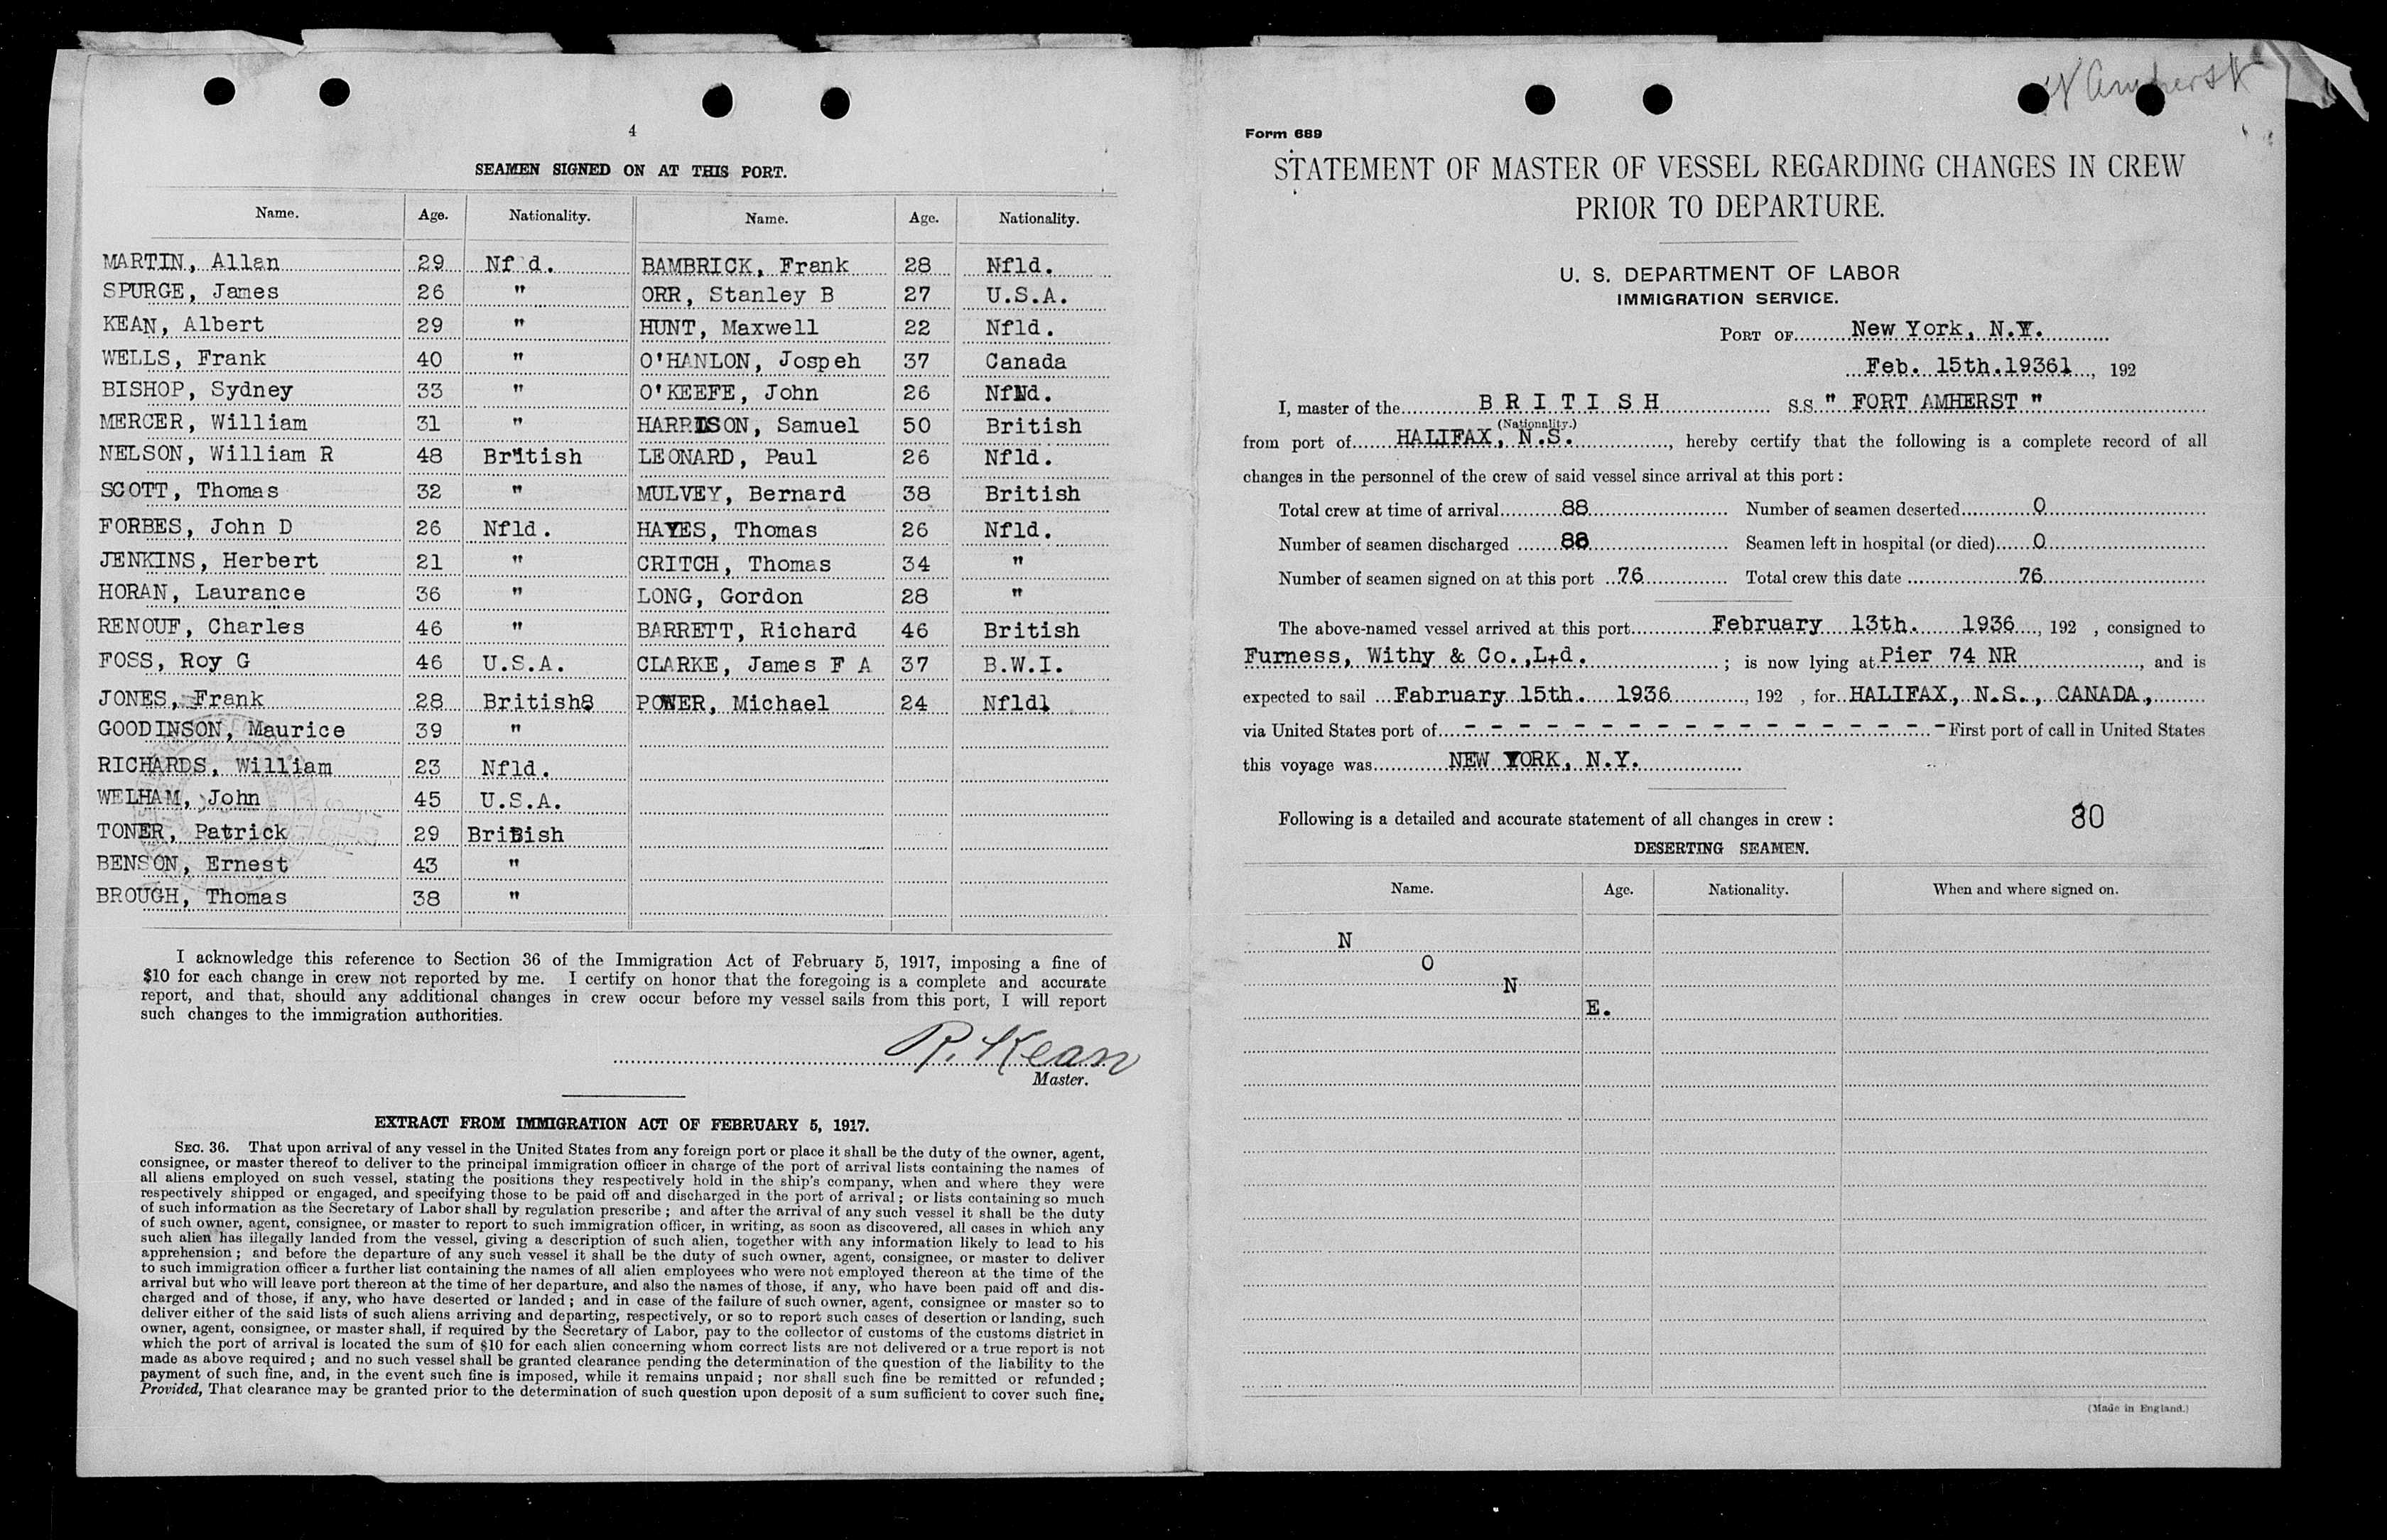 4
SEAMEN SIGNED ON AT THIS PORT.
Name. Age. Nationality. Name. Age. Nationality.
MARTIN, Allan 29 Nf d. BAMBRICK, Frank 28 Nfld.
SPURGE, James 26 " ORR, Stanley B 27 U.S.A.
KEAN, Albert 29 " HUNT, Maxwell 22 Nfld.
WELLS, Frank 40 " O'HANLON, Jospeh 37 Canada
BISHOP, Sydney 33 " O'KEEFE, John 26 Nfld.
MERCER, William 31 " HARRISON, Samuel 50 British
NELSON, William R 48 British LEONARD, Paul 26 Nfld.
SCOTT, Thomas 32 " MULVEY, Bernard 38 British
FORBES, John D 26 Nfld. HAYES, Thomas 26 Nfld.
JENKINS, Herbert 21 " CRITCH, Thomas 34 "
HORAN, Laurance 36 " LONG, Gordon 28 "
RENOUF, Charles 46 " BARRETT, Richard 46 British
FOSS, Roy G 46 U.S.A. CLARKE, James F A 37 B.W.I.
JONES, Frank 28 British8 POWER, Michael 24 Nfldl
GOODINSON, Maurice 39 "
RICHARDS, William 23 Nfld.
WELHAM, John 45 U.S.A.
TONER, Patrick 29 British
BENSON, Ernest 43 "
BROUGH, Thomas 38 "
I acknowledge this reference to Section 36 of the Immigration Act of February 5, 1917, imposing a fine of
$10 for each change in crew not reported by me. I certify on honor that the foregoing is a complete and accurate
report, and that, should any additional changes in crew occur before my vessel sails from this port, I will report
such changes to the immigration authorities.
R. Kean
Master.
EXTRACT FROM IMMIGRATION ACT OF FEBRUARY 5, 1917.
SEC. 36. That upon arrival of any vessel in the United States from any foreign port or place it shall be the duty of the owner, agent,
consignee, or master thereof to deliver to the principal immigration officer in charge of the port of arrival lists containing the names of
all aliens employed on such vessel, stating the positions they respectively hold in the ship's company, when and where they were
respectively shipped or engaged, and specifying those to be paid off and discharged in the port of arrival; or lists containing so much
of such information as the Secretary of Labor shall by regulation prescribe; and after the arrival of any such vessel it shall be the duty
of such owner, agent, consignee, or master to report to such immigration officer, in writing, as soon as discovered, all cases in which any
such alien has illegally landed from the vessel, giving a description of such alien, together with any information likely to lead to his
apprehension; and before the departure of any such vessel it shall be the duty of such owner, agent, consignee, or master to deliver
to such immigration officer a further list containing the names of all alien employees who were not employed thereon at the time of the
arrival but who will leave port thereon at the time of her departure, and also the names of those, if any, who have been paid off and dis-
charged and of those, if any, who have deserted or landed; and in case of the failure of such owner, agent, consignee or master so to
deliver either of the said lists of such aliens arriving and departing, respectively, or so to report such cases of desertion or landing, such
owner, agent, consignee, or master shall, if required by the Secretary of Labor, pay to the collector of customs of the customs district in
which the port of arrival is located the sum of $10 for each alien concerning whom correct lists are not delivered or a true report is not
made as above required; and no such vessel shall be granted clearance pending the determination of the question of the liability to the
payment of such fine, and, in the event such fine is imposed, while it remains unpaid; nor shall such fine be remitted or refunded;
Provided, That clearance may be granted prior to the determination of such question upon deposit of a sum sufficient to cover such fine.
Amherst
Form 689
STATEMENT OF MASTER OF VESSEL REGARDING CHANGES IN CREW
PRIOR TO DEPARTURE.
U. S. DEPARTMENT OF LABOR
IMMIGRATION SERVICE.
PORT OF New York, N.Y.
Feb. 15th.19361, 192
I, master of the BRITISH S.S. " FORT AMHERST "
(Nationality.)
from port of HALIFAX, N.S., hereby certify that the following is a complete record of all
changes in the personnel of the crew of said vessel since arrival at this port:
Total crew at time of arrival 88 Number of seamen deserted 0
Number of seamen discharged 88 Seamen left in hospital (or died) 0
Number of seamen signed on at this port 76 Total crew this date 76
The above-named vessel arrived at this port February 13th. 1936, 192 , consigned to
Furness, Withy & Co.,L+d. ; is now lying at Pier 74 NR, and is
expected to sail Fabruary 15th. 1936, 192 , for HALIFAX, N.S., CANADA.,
via United States port of - - - - - - - - - - - - - - - - - - First port of call in United States
this voyage was NEW YORK, N.Y.
Following is a detailed and accurate statement of all changes in crew: 80
DESERTING SEAMEN.
Name. Age. Nationality. When and where signed on.
N
O
N
E.
(Made in England.)